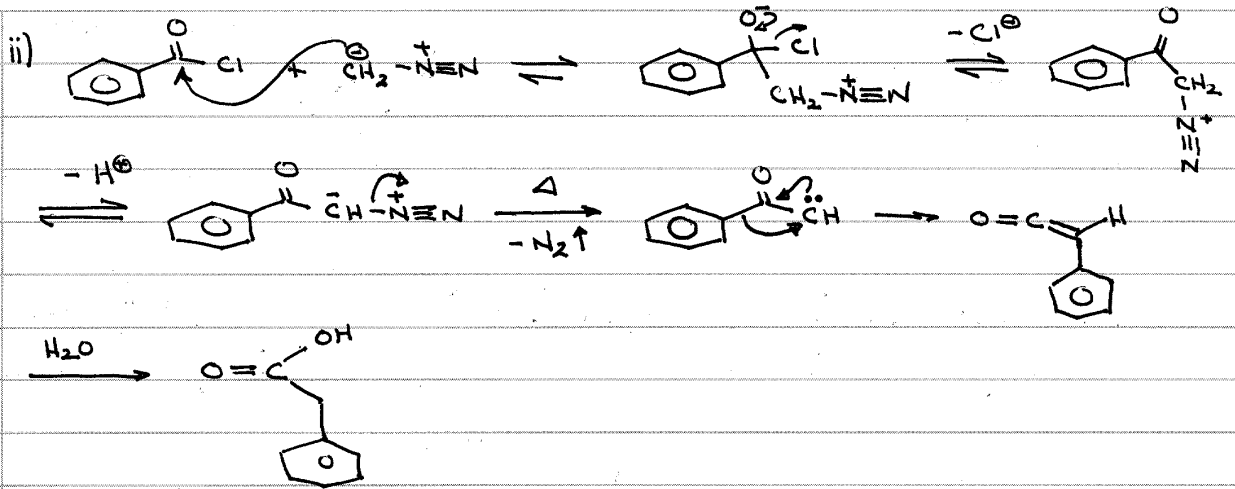 ii) O Cl + ⊖ CH₂ – N⁺≡N ⇌ O⁻ Cl CH₂–N⁺≡N – Cl⊖ ⇌ O CH₂ N⁺ ≡ N
– H⊕ ⇌ O C̄H – N⁺≡N Δ – N₂↑ → O C̈H → O=C H
H₂O → O=C OH